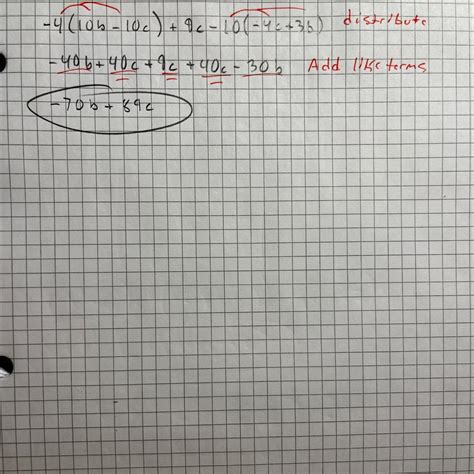 -4(10b-10c)+9c-10(-4c+3b) distribute
-40b+40c+9c+40c-30b Add like terms
-70b+89c